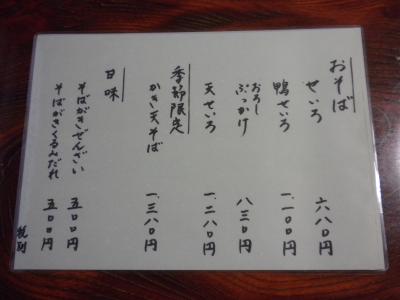 おそば
せいろ 六八〇円
鴨せいろ 一、一〇〇円
おろしぶっかけ 八三〇円
天せいろ 一、二八〇円
季節限定
かき天そば 一、三八〇円
甘味
そばがきぜんざい 五〇〇円
そばがきくるみだれ 五〇〇円
税別